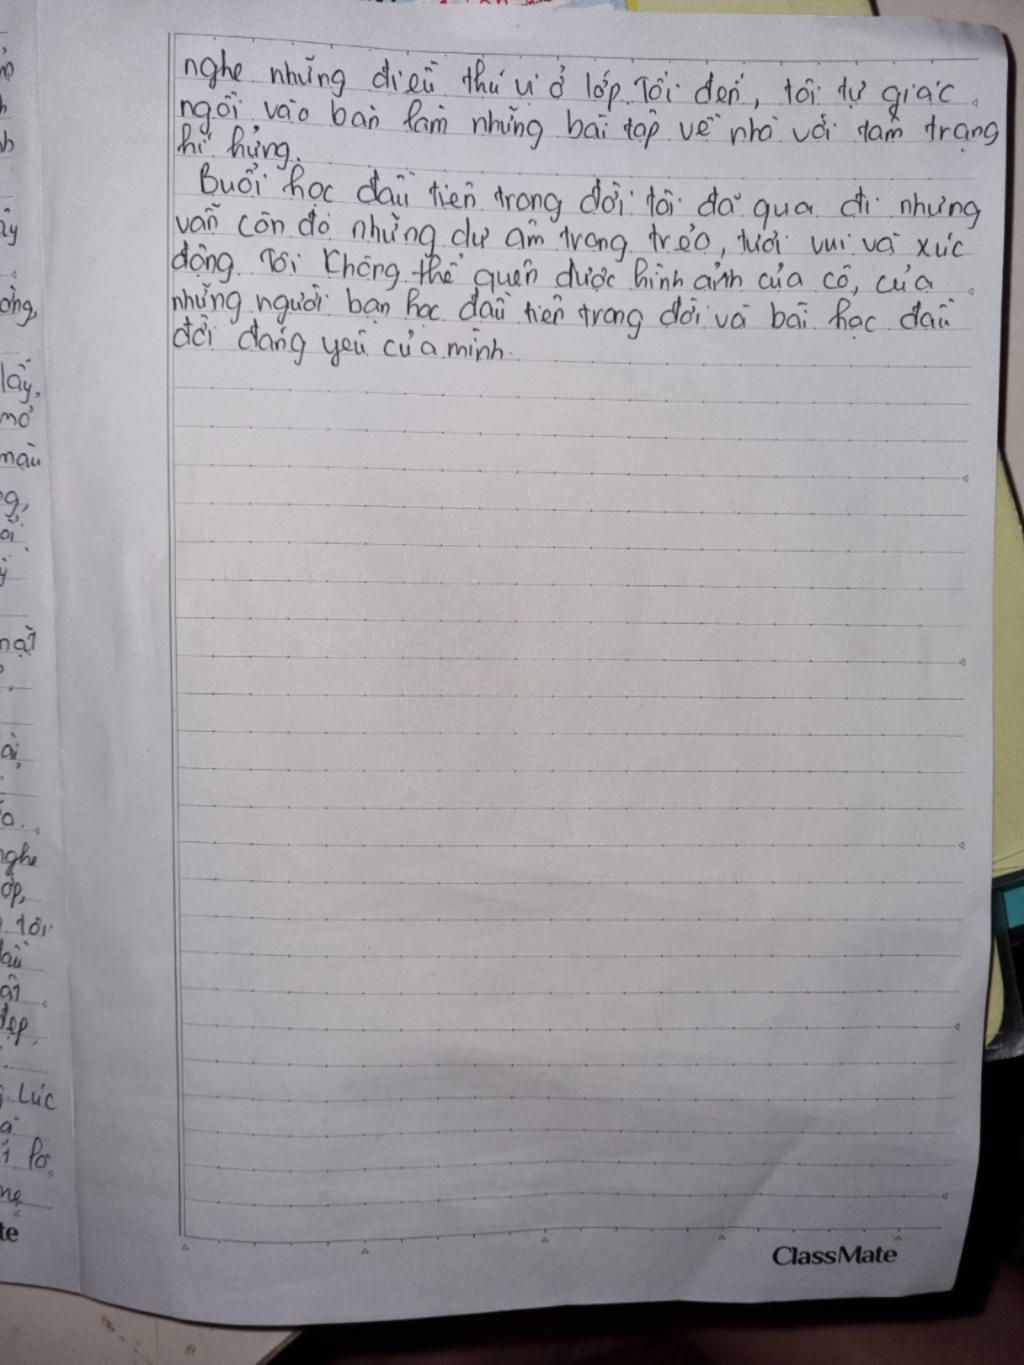 nghe những điều thú vị ở lớp. Tối đến, tôi tự giác
ngồi vào bàn làm những bài tập về nhà với tâm trạng
hí hửng.
Buổi học đầu tiên trong đời tôi đã qua đi nhưng
vẫn còn đó những dư âm trong trẻo, tươi vui và xúc
động. Tôi không thể quên được hình ảnh của cô, của
những người bạn học đầu tiên trong đời và bài học đầu
đời đáng yêu của mình.
ClassMate